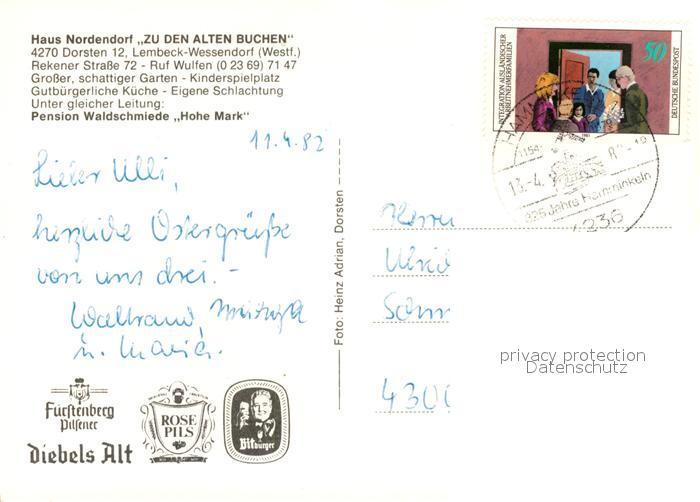 Haus Nordendorf „ZU DEN ALTEN BUCHEN“
4270 Dorsten 12, Lembeck-Wessendorf (Westf.)
Rekener Straße 72 - Ruf Wulfen (0 23 69) 71 47
Großer, schattiger Garten - Kinderspielplatz
Gutbürgerliche Küche - Eigene Schlachtung
Unter gleicher Leitung:
Pension Waldschmiede „Hohe Mark“
INTEGRATION AUSLÄNDISCHER
ARBEITNEHMERFAMILIEN
50
DEUTSCHE BUNDESPOST
1981
13.-4.
825 Jahre Hamminkeln
4236
11.4.82
Lieber Ulli,
herzliche Ostergrüße
von uns drei. -
Waltraud,
u. Maria.
Foto: Heinz Adrian, Dorsten
Herrn
Ulric
4300
privacy protection
Datenschutz
Fürstenberg
Pilsener
Diebels Alt
ROSE
PILS
Bitburger